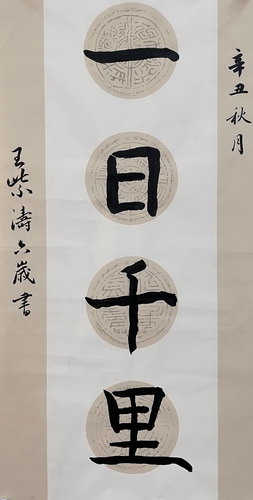 辛丑秋月
一日千里
王紫濤六歲書